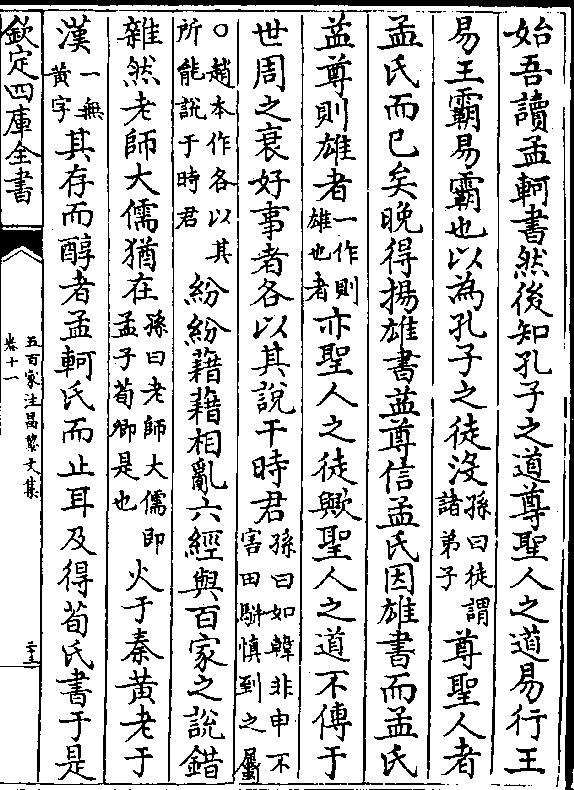 始吾讀孟軻書然後知孔子之道尊聖人之道易行王
易王霸易霸也以為孔子之徒沒孫曰徒謂諸弟子尊聖人者
孟氏而已矣晚得揚雄書益尊信孟氏因雄書而孟氏
益尊則雄者一作則雄也者亦聖人之徒歟聖人之道不傳于
世周之衰好事者各以其說干時君孫曰如韓非申不害田駢慎到之屬
○趙本作各以其所能說于時君紛紛藉藉相亂六經與百家之說錯
雜然老師大儒猶在孫曰老師大儒即孟子荀卿是也火于秦黃老于
漢一無黃字其存而醇者孟軻氏而止耳及得荀氏書于是
欽定四庫全書
五百家注昌黎文集
卷十一
二十三